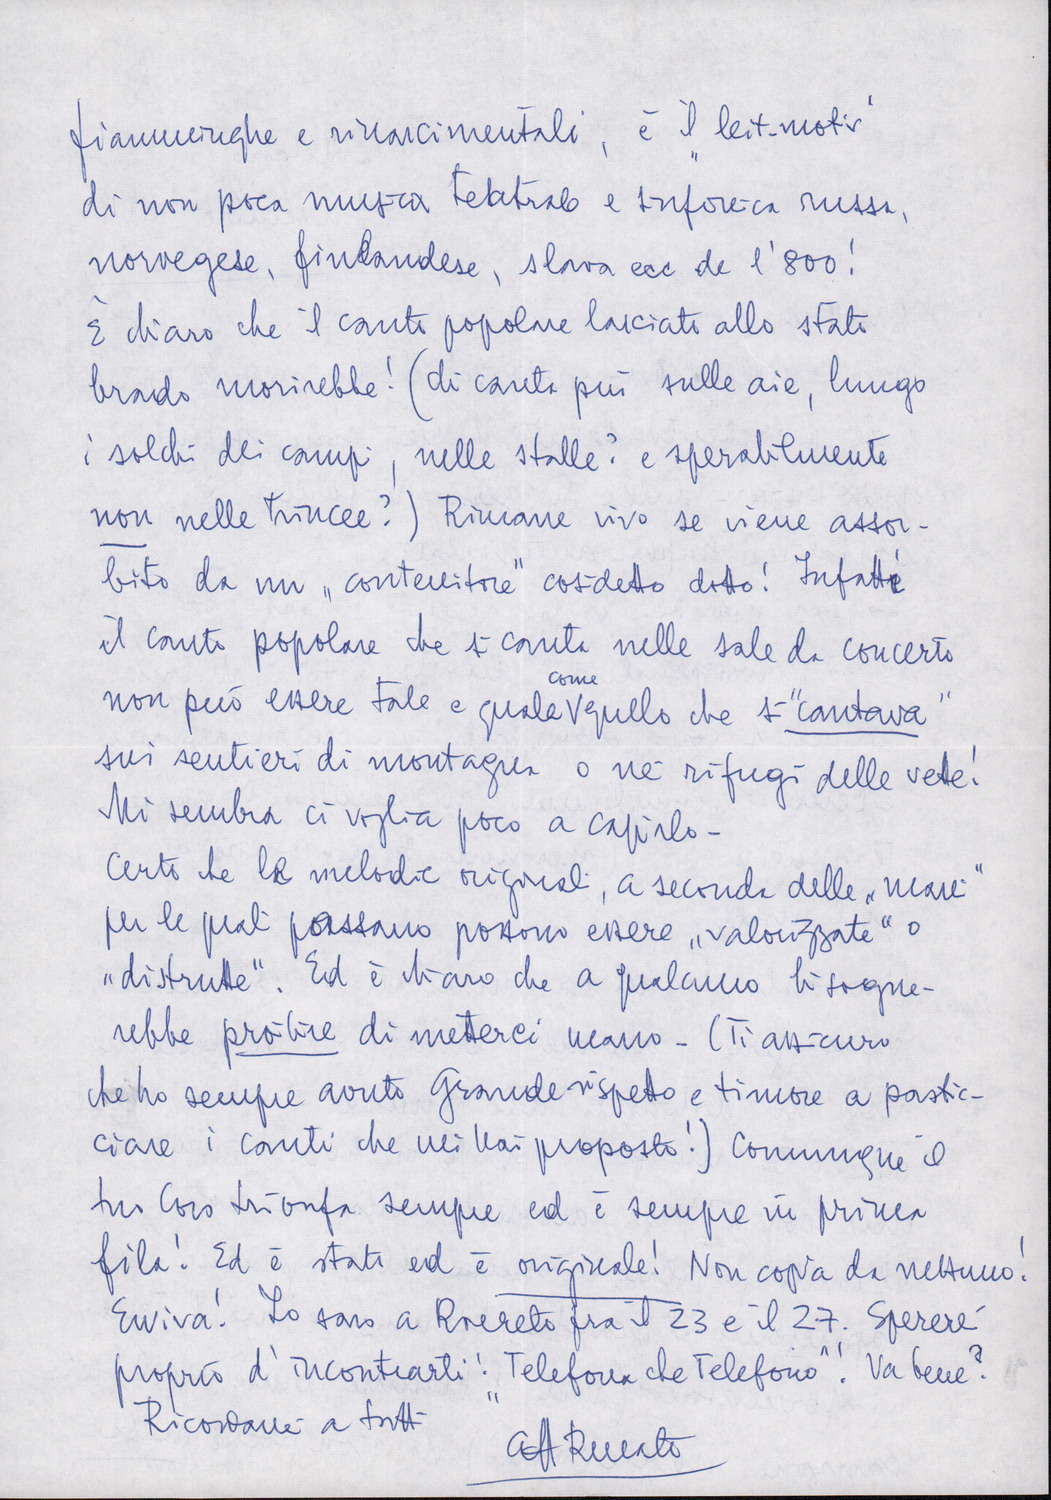 fiamminghe e rinascimentali, è il „leit-motiv"
di non poca musica teatrale e sinfonica russa,
norvegese, finlandese, slava ecc de l'800!
È chiaro che il canto popolare lasciato allo stato
brado morirebbe! (di canta più sulle aie, lungo
i solchi dei campi, nelle stalle? e sperabilmente
non nelle trincee?) Rimane vivo se viene assor-
bito da un „contenitore" cosidetto dotto! Infatti
il canto popolare che si canta nelle sale da concerto
non può essere tale e quale come quello che si "cantava"
sui sentieri di montagna o nei rifugi delle vette!
Mi sembra ci voglia poco a capirlo -
Certo che le melodie originali, a seconda delle „mani"
per le quali passano possono essere „valorizzate" o
„distrutte". Ed è chiaro che a qualcuno bisogne-
rebbe proibire di metterci mano - (Ti assicuro
che ho sempre avuto Grande rispetto e timore a pastic-
ciare i canti che mi hai proposto!) Comunque il
tuo Coro trionfa sempre ed è sempre in prima
fila! Ed è stato ed è originale! Non copia da nessuno!
Evviva! Io sarò a Rovereto fra il 23 e il 27. Spererei
proprio d'incontrarti! „Telefona che Telefono"! Va bene?
Ricordami a tutti
aff Renato